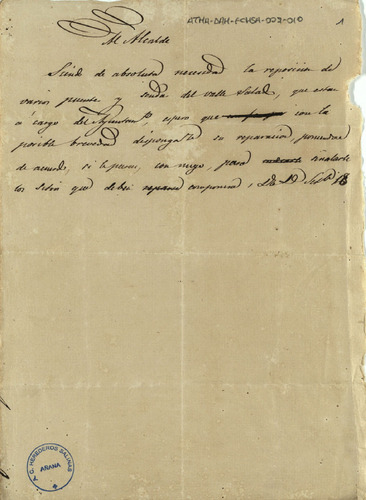 ATHA-DAH-FCHSA-003-010
1
Al Alcalde
Siendo de absoluta necesidad la reposicion de
varios puentes y sendas del valle Salado, que estan
á cargo del Ayuntam.to espero que con la
posible brevedad disponga la su reparacion, poniendose
de acuerdo, si le parece, con migo, para señalarle
los sitios que deben componerse,
A. C. HEREDEROS SALINAS
AÑANA